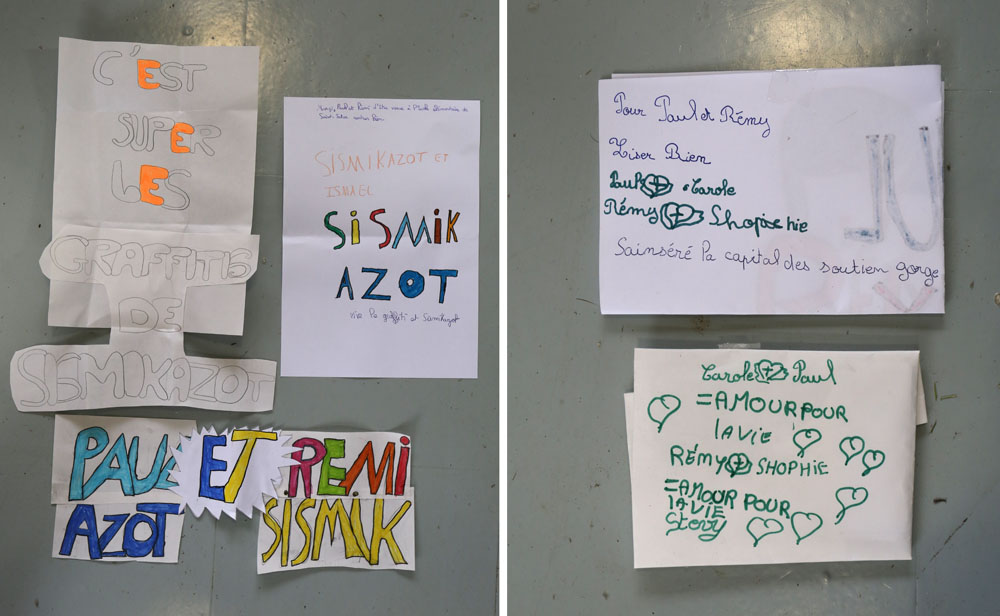 C'EST
SUPER
LES
GRAFFITIS
DE
SISMIKAZOT
PAUL ET REMI
AZOT SISMIK
Merci, Paul et Remi d'être venus à l'école élémentaire de
SISMIKAZOT ET
ISMAEL
SISMIK
AZOT
vive la graffiti et Sismikazot
Pour Paul et Rémy
Liser Bien
Paul + Carole
Rémy + Shopie hie
Sainséré la capital des soutien gorge
JU
Carole + Paul
= AMOUR POUR
la vie
RÉMY + SHOPHIE
= AMOUR POUR
la VIE
Story